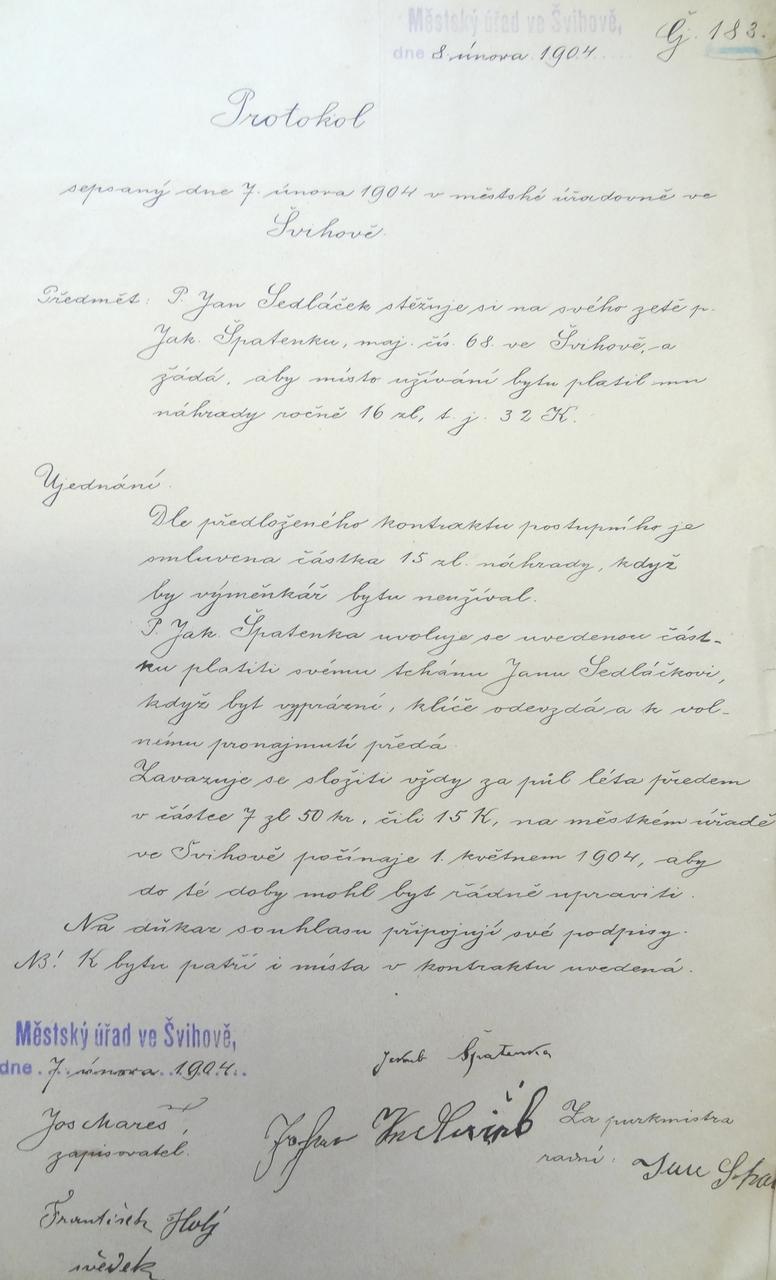 Městský úřad ve Švihově,
dne 8. února 1904
Čj. 183.
Protokol
sepsaný dne 7. února 1904 v městské úřadovně ve
Švihově.
Předmět: P. Jan Sedláček stěžuje si na svého zetě p.
Jak. Špatenku, maj. čís. 68. ve Švihově, a
žádá, aby místo užívání bytu platil mu
náhrady ročně 16 zl, t. j. 32 K.
Ujednání.
Dle předloženého kontraktu postupního je
smluvena částka 15 zl. náhrady, když
by výměnkář bytu neužíval.
P. Jak. Špatenka uvoluje se uvedenou část-
ku platiti svému tchánu Janu Sedláčkovi,
když byt vyprázní, klíče odevzdá a k vol-
nímu pronajmutí předá.
Zavazuje se složiti vždy za půl léta předem
v částce 7 zl 50 kr, čili 15 K, na městkém úřadě
ve Švihově počínaje 1. květnem 1904, aby
do té doby mohl byt řádně upraviti.
Na důkaz souhlasu připojují své podpisy.
NB! K bytu patří i místa v kontraktu uvedená.
Městský úřad ve Švihově,
dne 7. února 1904.
Jakub Špatenka
Jos Mareš,
zapisovatel.
Za purkmistra
radní:
František Holý
svědek